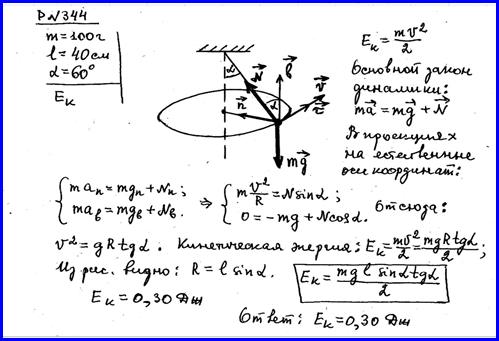 Р№344
m = 100г
l = 40см
α = 60°
Eк
α
N⃗
в⃗
α
v⃗
τ⃗
n⃗
mg⃗
Eк = mv²/2
Основной закон
динамики:
ma⃗ = mg⃗ + N⃗
В проекциях
на естественные
оси координат:
{ maₙ = mgₙ + Nₙ; maв = mgв + Nв. ⇒ { m v²/R = N sinα; 0 = -mg + N cosα. Отсюда:
v² = gR tgα. Кинетическая энергия: Eк = mv²/2 = mgR tgα/2;
Из рис. видно: R = l sinα. Eк = mgl sinα tgα/2
Eк = 0,30 Дж
Ответ: Eк = 0,30 Дж